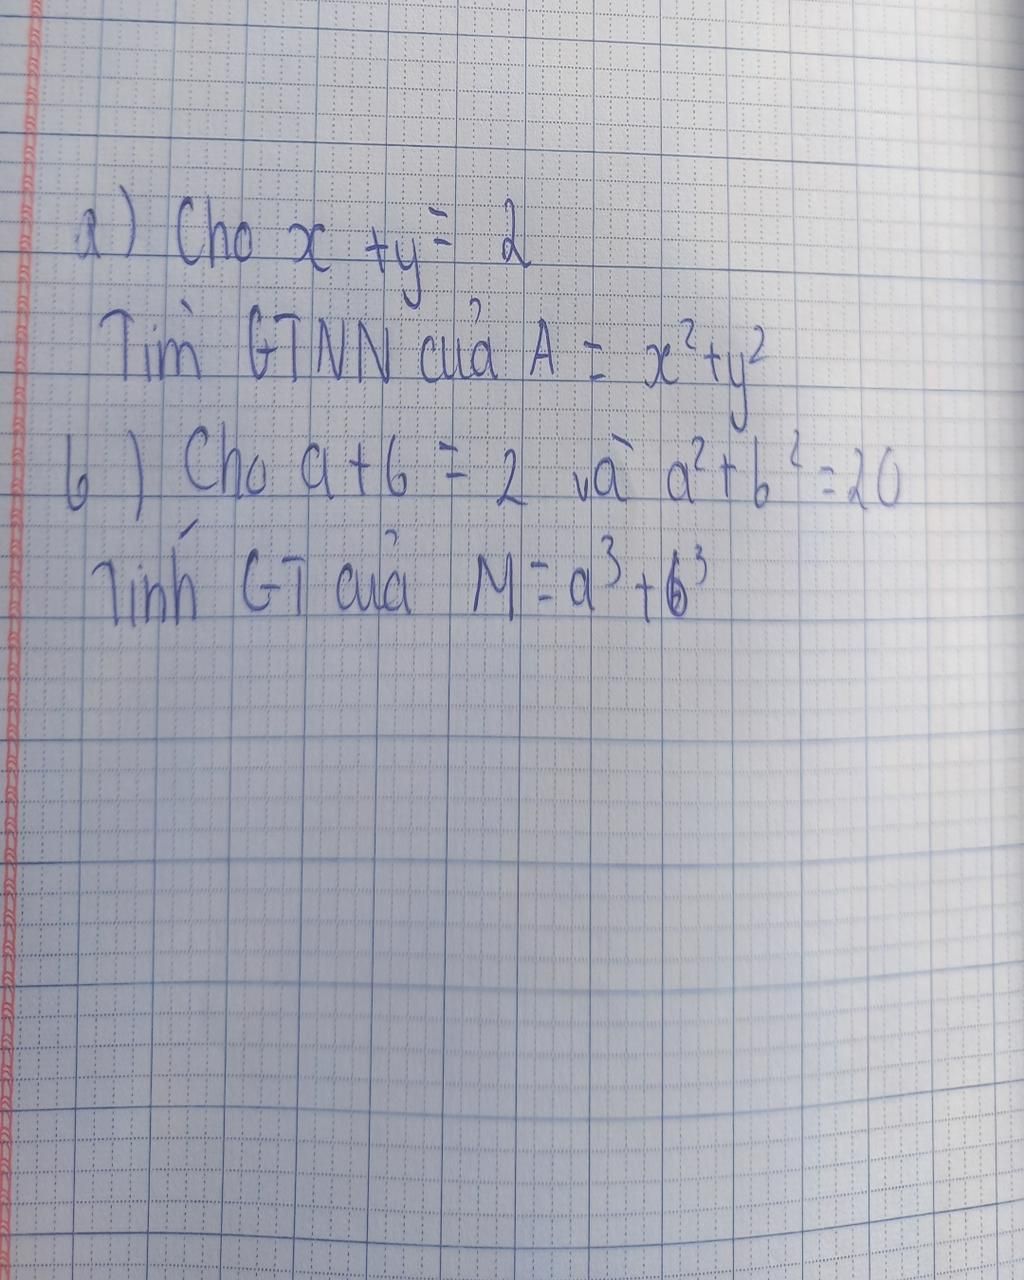 a) Cho x + y = 2
Tìm GTNN của A = x² + y²
b) Cho a + b = 2 và a² + b² = 20
Tính GT của M = a³ + b³